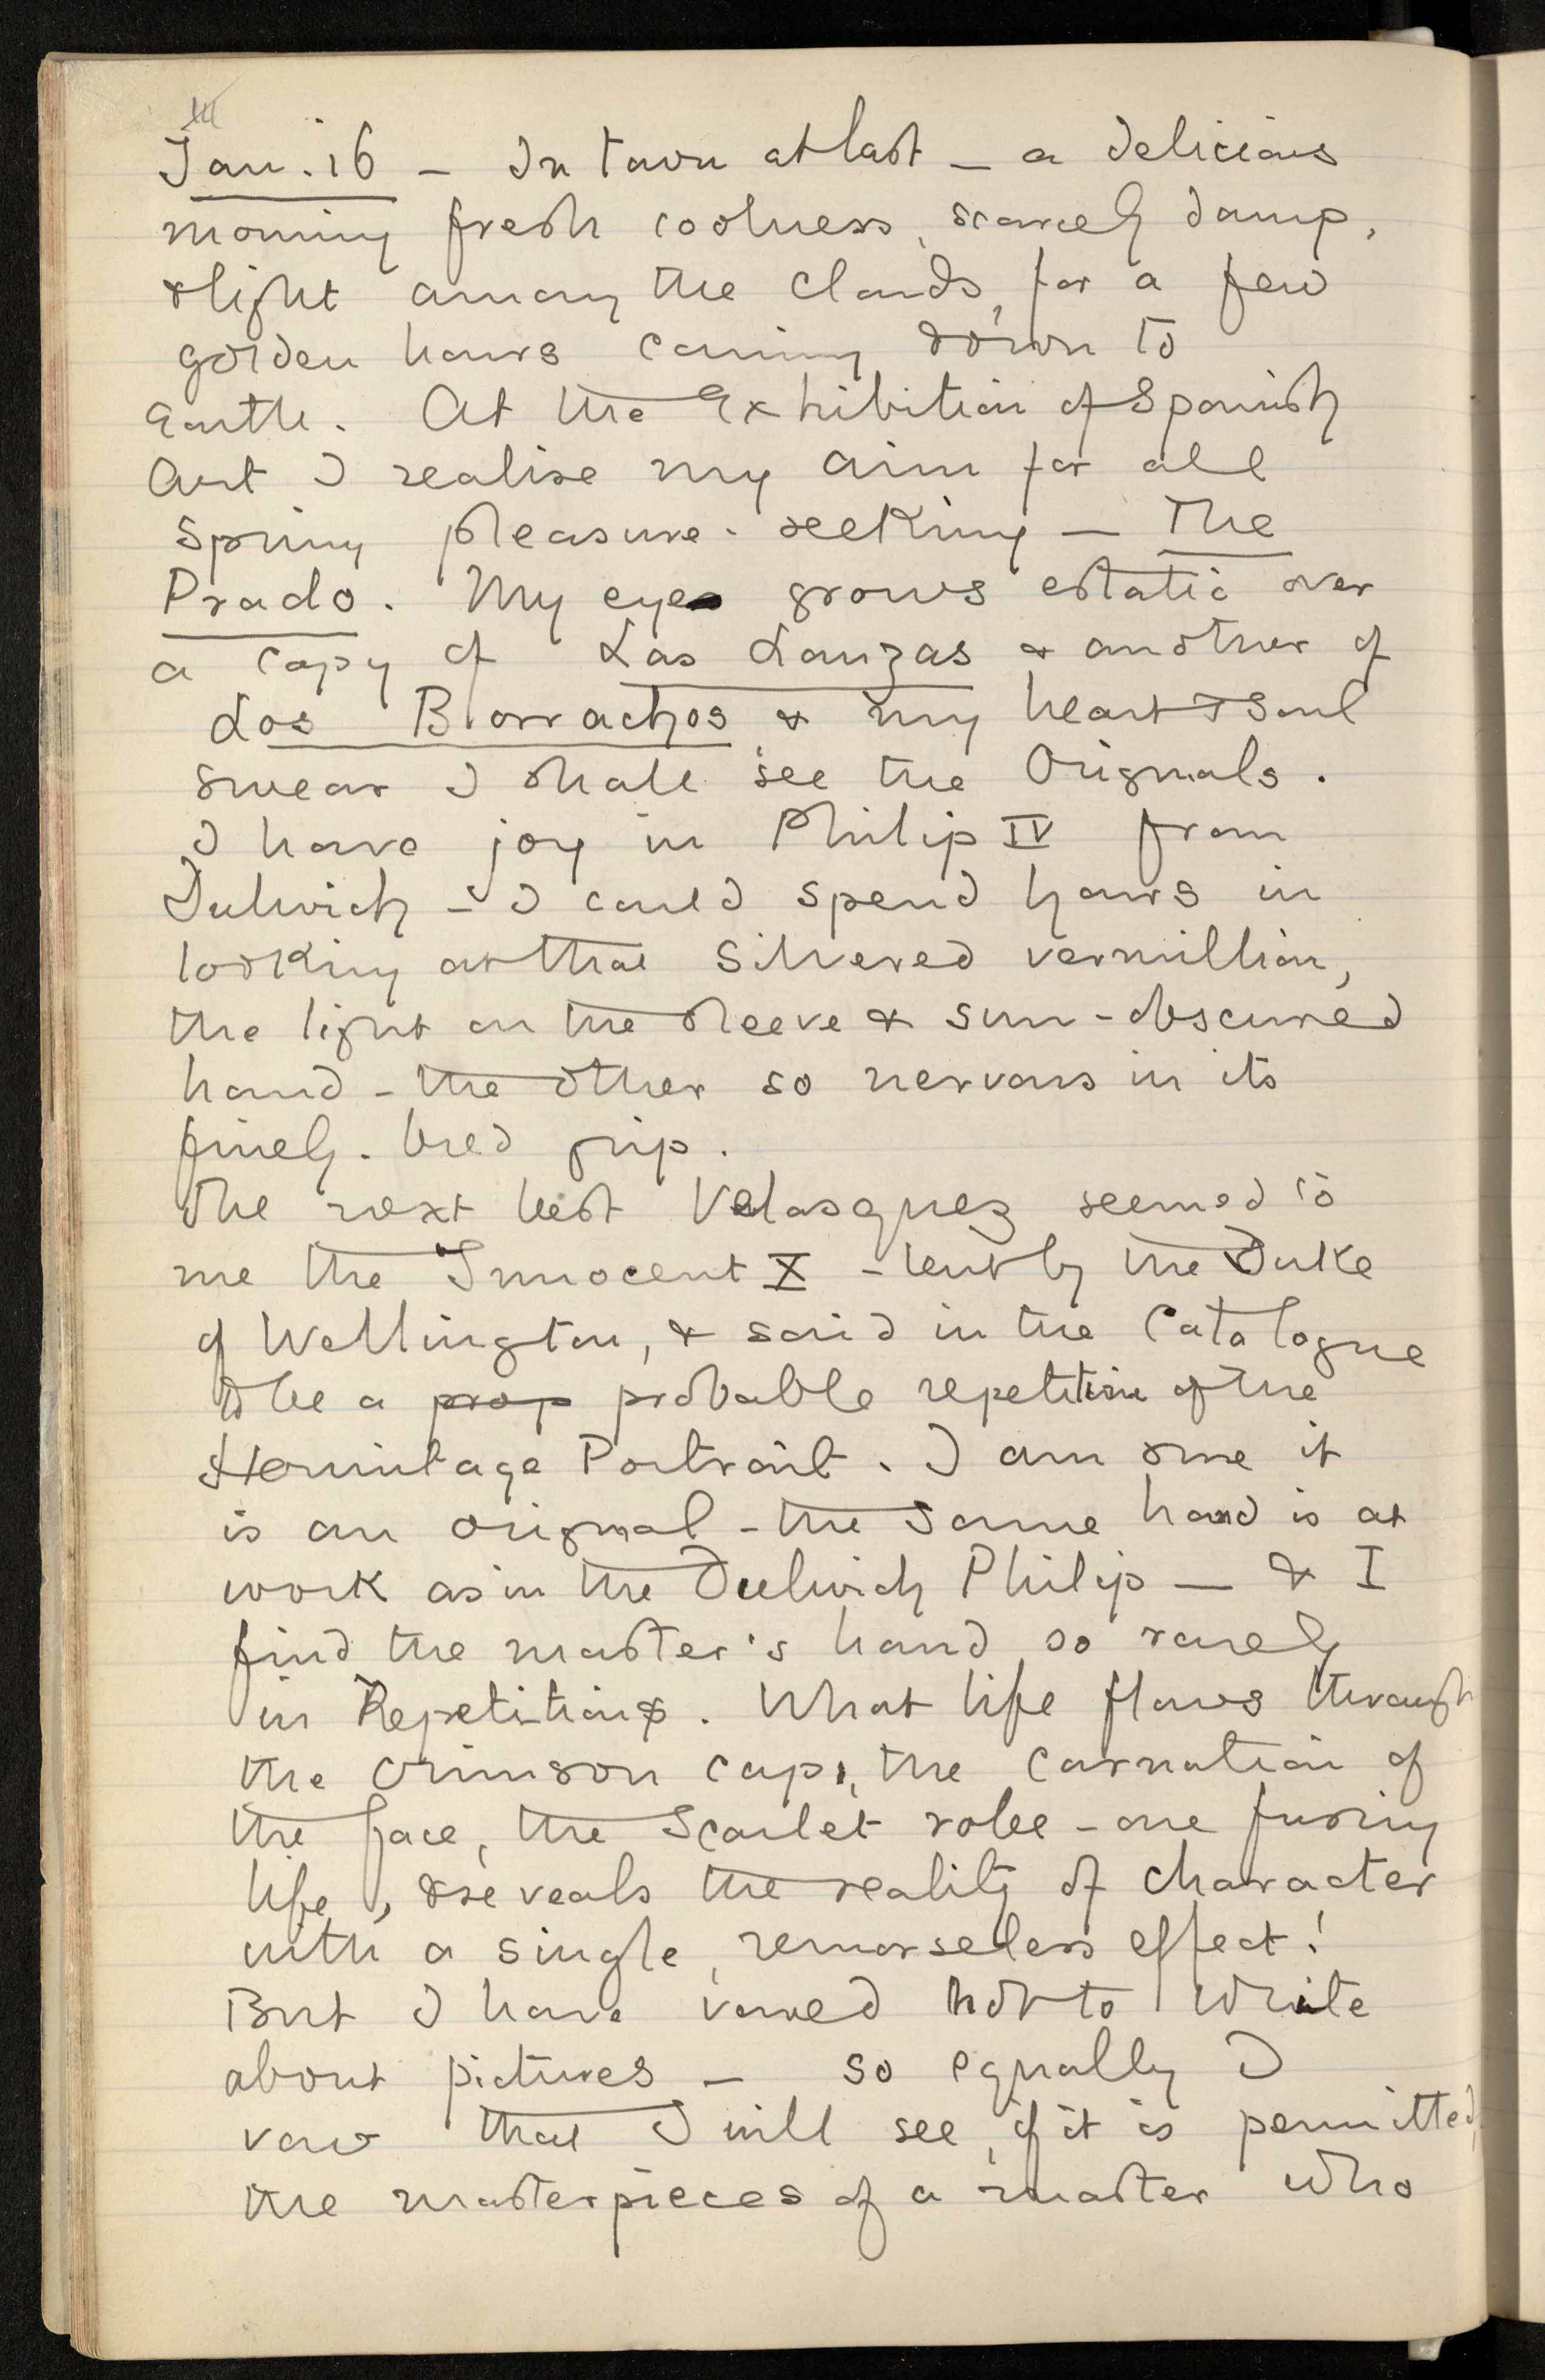 Jan. 16 - In town at last - a delicious
morning fresh coolness, scarcely damp,
& light among the clouds, for a few
golden hours coming down to
Earth. At the Exhibition of Spanish
Art I realise my aim for all
Spring pleasure-seeking - The
Prado. My eye grows estatic over
a copy of Las Lanzas & another of
Los Borrachos & my heart & soul
swear I shall see the Originals.
I have joy in Philip IV from
Dulwich - I could spend hours in
looking at that silvered vermillion,
the light on the sleeve & sun-obscured
hand - the other so nervous in its
finely-bred grip.
The next best Velasquez seemed to
me the Innocent X - lent by the Duke
of Wellington, & said in the Catalogue
to be a prop probable repetition of the
Hermitage Portrait. I am sure it
is an original - the same hand is at
work as in the Dulwich Philip - & I
find the master's hand so rarely
in Repetitions. What life flows through
the crimson cap, the carnation of
the face, the Scarlet robe - one fusing
life, & reveals the reality of character
with a single, remorseless effect!
But I have vowed not to write
about pictures - so equally I
vow that I will see, if it is permitted,
the masterpieces of a master who